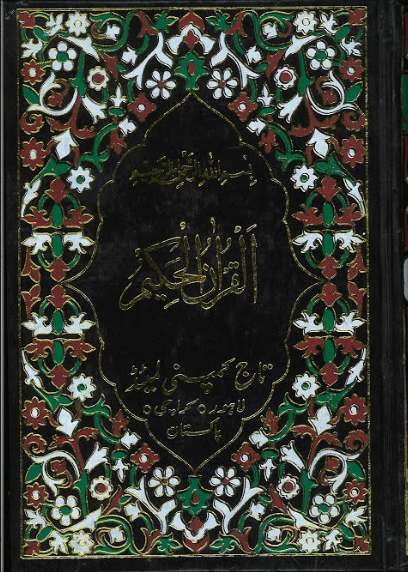 بسم الله الرحمن الرحیم
اَلْقُرْاٰنُ الْحَكِيْمُ
تاج کمپنی لمیٹڈ
لاہور ٥ کراچی ٥
پاکستان